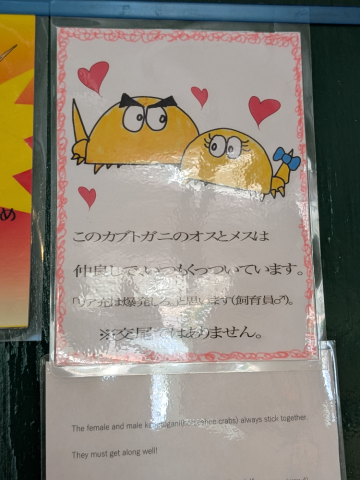 このカブトガニのオスとメスは
仲良しで、いつもくっついています。
「リア充は爆発しろ」と思います(飼育員♂)。
※交尾ではありません。
め
The female and male (horseshoe crabs) always stick together.
They must get along well!